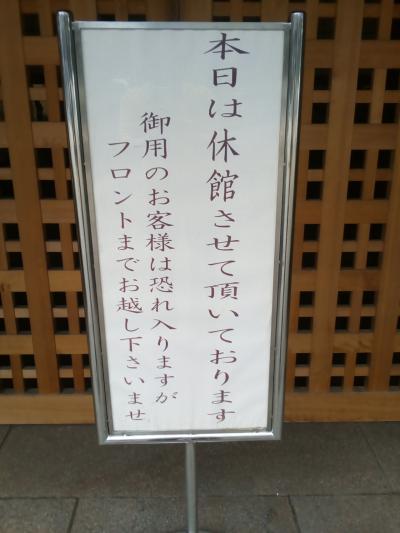 本日は休館させて頂いております
御用のお客様は恐れ入りますが
フロントまでお越し下さいませ